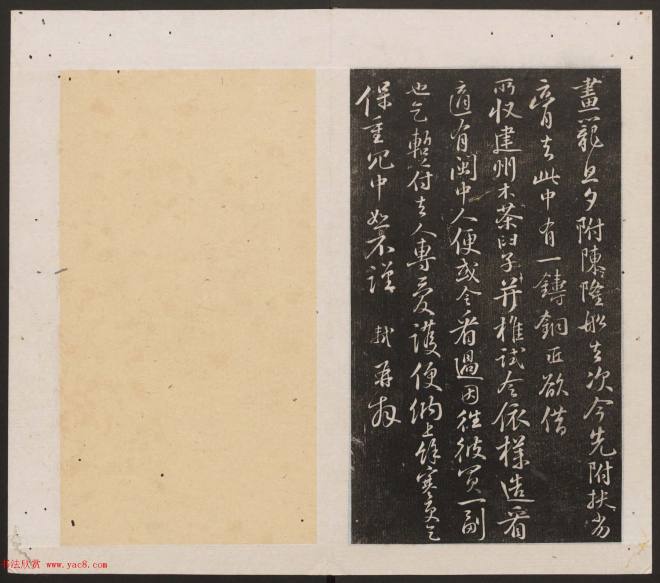 畫籠旦夕附陳隆船去次今先附扶劣
膏去此中有一鑄銅匠欲借
所收建州木茶臼子并椎試令依樣造看
適有閩中人便或令看過因往彼買一副
也乞暫付去人專愛護便納上餘寒更乞
保重冗中恕不謹 軾再拜
书法欣赏 www.yac8.com